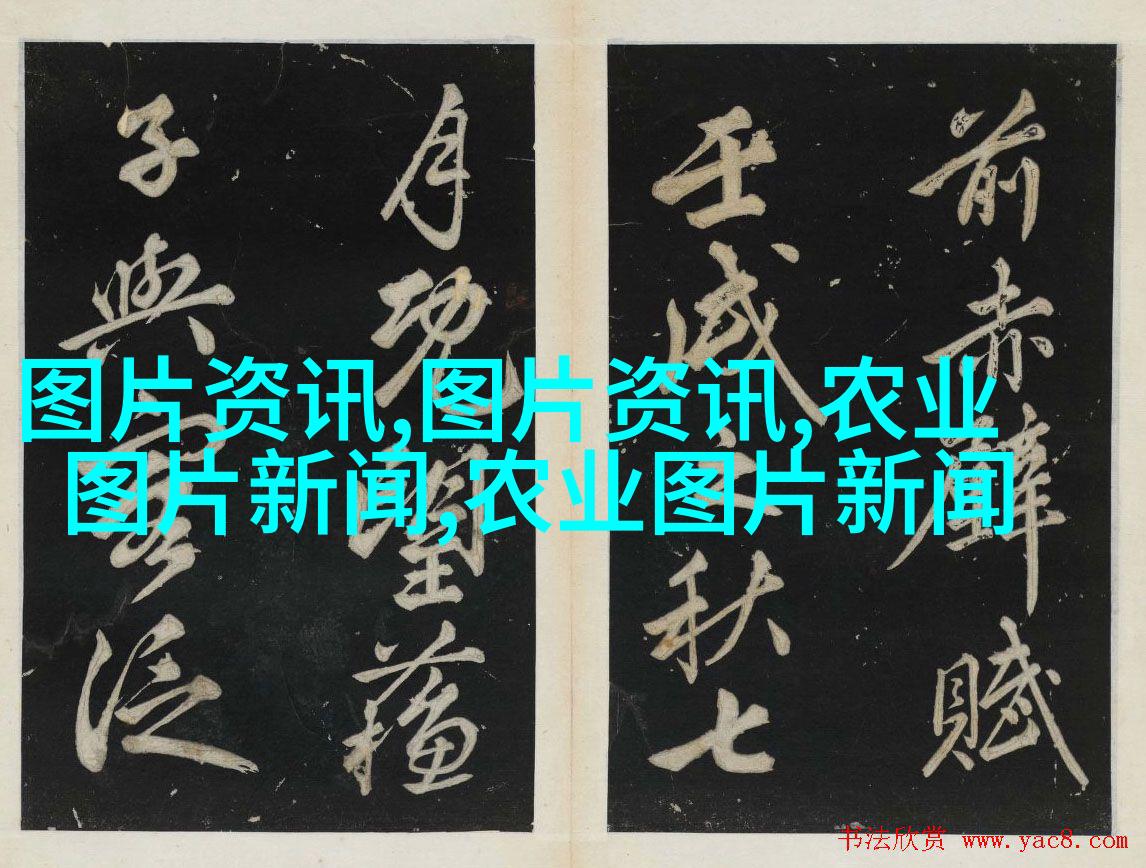 前赤壁賦
壬戌之秋七
月既望蘓
子與客泛
图片资讯,图片资讯,农业
图片新闻,农业图片新闻
书法欣赏 www.yac8.com